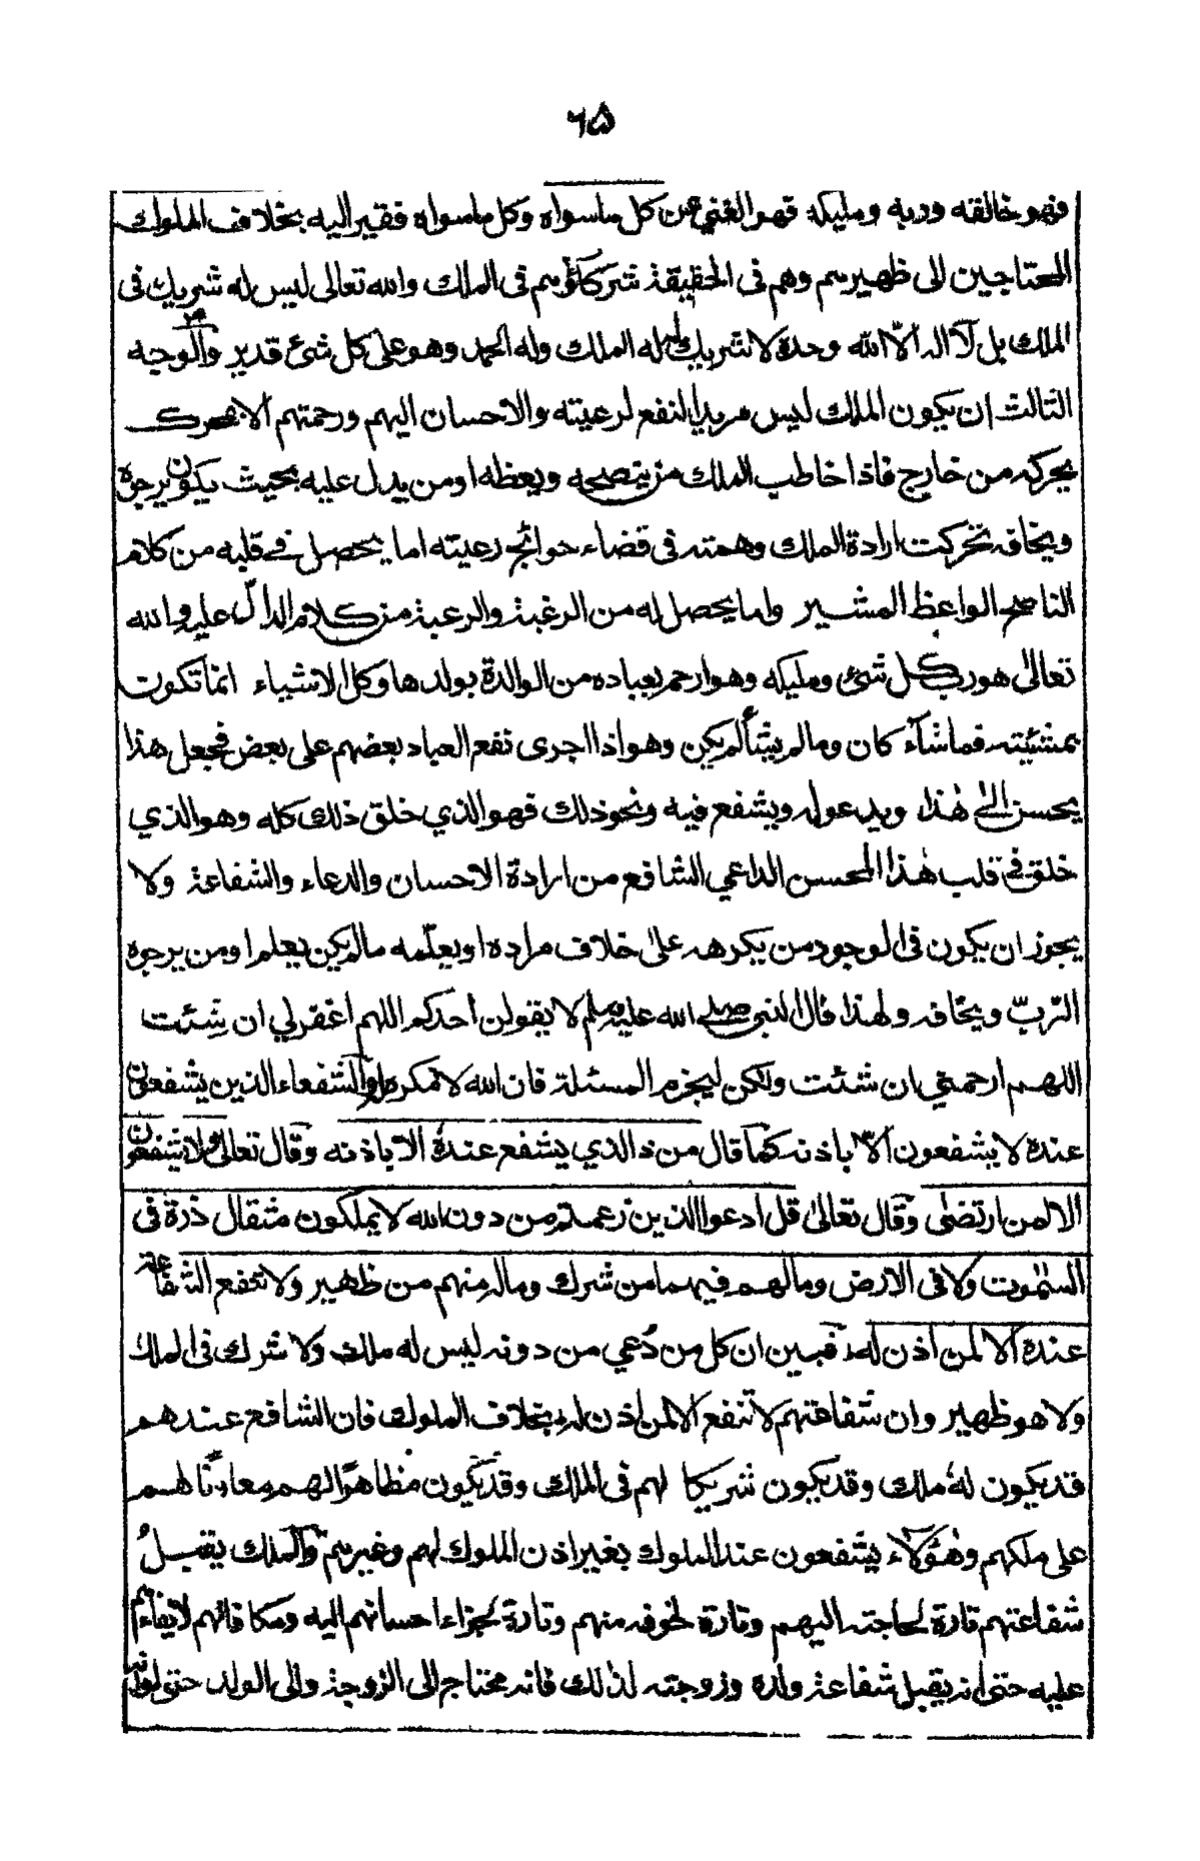 ٦٥
فهو خالقه وربه ومليكه فهو الغني عن كل ماسواه وكل ماسواه فقير اليه بخلاف الملوك
المحتاجين الى ظهيرهم وهم فى الحقيقة شركاؤهم فى الملك والله تعالى ليس له شريك فى
الملك بل لآ اله الّا الله وحده لا شريك له له الملك وله الحمد وهو على كل شئ قدير والوجه
الثالث ان يكون الملك ليس مريدا لنفع لرعيته والاحسان اليهم ورحمتهم الا بمحرك
يحركه من خارج فاذا خاطب الملك من ينصحه ويعظه او من يدل عليه بحيث يكون يرجوه
ويخافه تحركت ارادة الملك وهمته فى قضاء حوائج رعيته اما يحصل في قلبه من كلام
الناصح الواعظ المشير واما يحصل له من الرغبة والرعبة من كلام الدالّ عليه والله
تعالى هو رب كل شئ ومليكه وهو ارحم بعباده من الوالدة بولدها وكل الاشياء انما تكون
بمشيئته فما شآء كان وما لم يشأ لم يكن وهو اذا اجرى نفع العباد بعضهم على بعض فجعل هذا
يحسن الى هٰذا ويدعو له ويشفع فيه ونحو ذلك فهو الذي خلق ذلك كله وهو الذي
خلق فى قلب هٰذا المحسن الداعي الشافع من ارادة الاحسان والدعاء والشفاعة ولا
يجوز ان يكون فى الوجود من يكرهه على خلاف مراده او يعلّمه ما لم يكن يعلم او من يرجوه
الرّبّ ويخافه ولهذا قال النبى صلى الله عليه وسلم لا يقولن أحدكم اللهم اغفرلي ان شِئت
اللهم ارحمني ان شئت ولكن ليجزم المسئلة فان الله لا مكره له والشفعاء الذين يشفعون
عنده لا يشفعون الّا باذنه كما قال من ذا الذي يشفع عنده الا باذنه وقال تعالى ولا يشفعون
الا لمن ارتضى وقال تعالىٰ قل ادعوا الذين زعمتم من دون الله لا يملكون مثقال ذرة فى
السمٰوت ولا فى الارض وما لهم فيهما من شرك وما له منهم من ظهير ولا تنفع الشفاعة
عنده الا لمن اذن له فبين ان كل من دُعي من دونه ليس له ملك ولا شرك فى الملك
ولا هو ظهير وان شفاعتهم لا تنفع الا لمن اذن له بخلاف الملوك فان الشافع عندهم
قد يكون لهٗ ملك وقد يكون شريكا لهم فى الملك وقد يكون مظاهرًا لهم معاونًا لهم
على ملكهم وهٰؤلآء يشفعون عند الملوك بغير اذن الملوك لهم وغيرهم والملك يقبلُ
شفاعتهم تارة لحاجته اليهم وتارة لخوفه منهم وتارة لجزاء احسانهم اليه ومكافاتهم
عليه حتى انه يقبل شفاعة ولده وزوجته لذلك فانه محتاج الى الزوجة والى الولد حتى لو